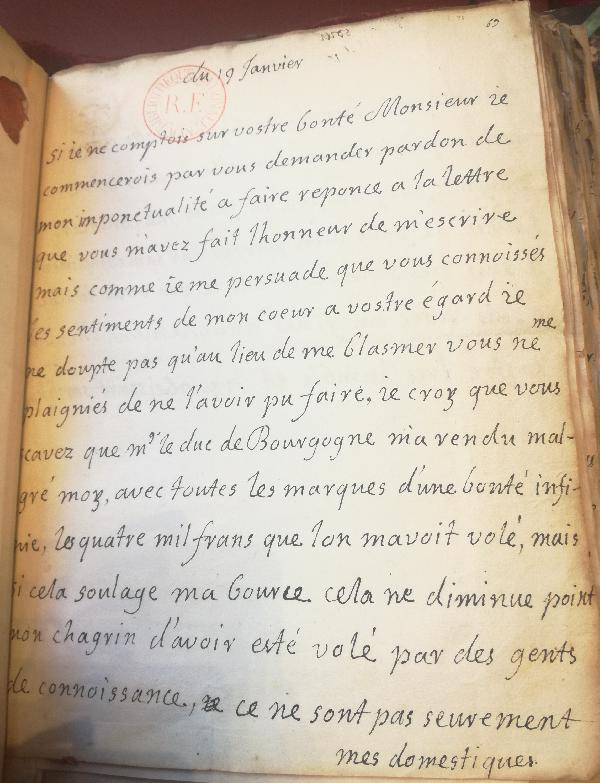 63
du 19 Janvier
R.F
si ie ne comptois sur vostre bonté Monsieur ie
commencerois par vous demander pardon de
mon inponctualité a faire reponce a la lettre
que vous m'avez fait lhonneur de m'escrire
mais comme ie me persuade que vous connoissés
les sentiments de mon coeur a vostre égard ie
me
ne doupte pas qu'au lieu de me blasmer vous ne
plaigniés de ne l'avoir pu faire, ie croy que vous
scavez que mgr le duc de Bourgogne m'a rendu mal-
gré moy, avec toutes les marques d'une bonté infi-
nie, les quatre mil frans que lon mavoit volé, mais
si cela soulage ma bource cela ne diminue point
mon chagrin d'avoir esté volé par des gents
de connoissance, ce ne sont pas seurement
mes domestiques.